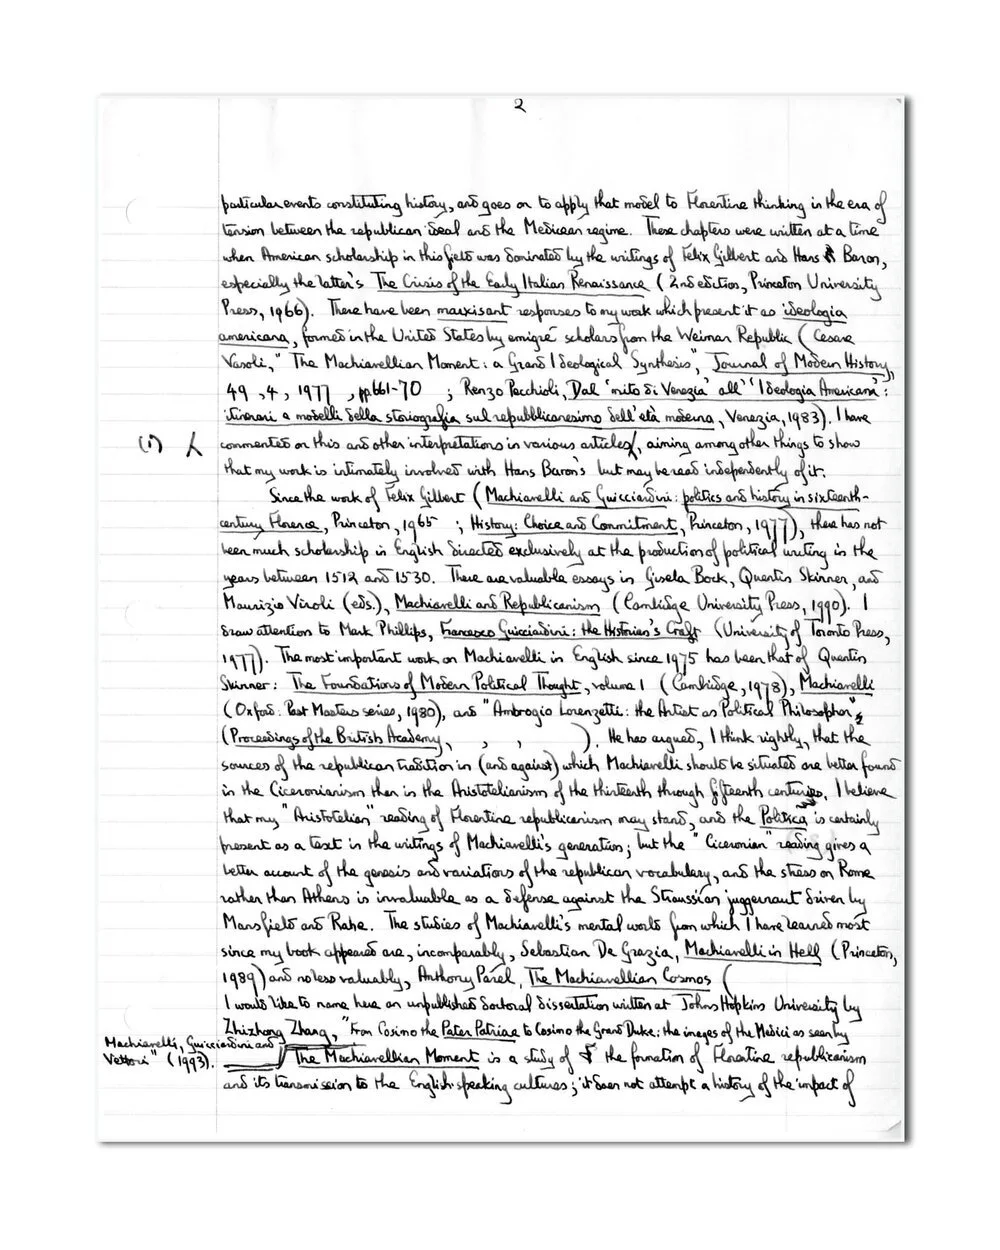 2
particular events constituting history, and goes on to apply that model to Florentine thinking in the era of
tension between the republican ideal and the Medicean regime. These chapters were written at a time
when American scholarship in this field was dominated by the writings of Felix Gilbert and Hans Baron,
especially the latter's The Crisis of the Early Italian Renaissance (2nd edition, Princeton University
Press, 1966). There have been marxisant responses to my work which present it as ideologia
americana, formed in the United States by emigré scholars from the Weimar Republic (Cesare
Vasoli, "The Machiavellian Moment: a Grand Ideological Synthesis", Journal of Modern History,
49, 4, 1977, pp. 661-70 ; Renzo Pecchioli, Dal 'mito di Venezia' all' 'Ideologia Americana':
itinerari e modelli della storiografia sul repubblicanesimo dell'età moderna, Venezia, 1983). I have
(1) commented on this and other interpretations in various articles, aiming among other things to show
that my work is intimately involved with Hans Baron's but may be read independently of it.
Since the work of Felix Gilbert (Machiavelli and Guicciardini: politics and history in sixteenth-
century Florence, Princeton, 1965 ; History: Choice and Commitment, Princeton, 1977), there has not
been much scholarship in English directed exclusively at the production of political writing in the
years between 1512 and 1530. There are valuable essays in Gisela Bock, Quentin Skinner, and
Maurizio Viroli (eds.), Machiavelli and Republicanism (Cambridge University Press, 1990). I
draw attention to Mark Phillips, Francesco Guicciardini: the Historian's Craft (University of Toronto Press,
1977). The most important work on Machiavelli in English since 1975 has been that of Quentin
Skinner: The Foundations of Modern Political Thought, volume 1 (Cambridge, 1978), Machiavelli
(Oxford: Past Masters series, 1980), and "Ambrogio Lorenzetti: the Artist as Political Philosopher",
(Proceedings of the British Academy, , , ). He has argued, I think rightly, that the
sources of the republican tradition in (and against) which Machiavelli should be situated are better found
in the Ciceronianism than in the Aristotelianism of the thirteenth through fifteenth centuries. I believe
that my "Aristotelian" reading of Florentine republicanism may stand, and the Politica is certainly
present as a text in the writings of Machiavelli's generation; but the "Ciceronian" reading gives a
better account of the genesis and variations of the republican vocabulary, and the stress on Rome
rather than Athens is invaluable as a defense against the Straussian juggernaut driven by
Mansfield and Rahe. The studies of Machiavelli's mental world from which I have learned most
since my book appeared are, incomparably, Sebastian De Grazia, Machiavelli in Hell (Princeton,
1989) and no less valuably, Anthony Parel, The Machiavellian Cosmos (
I would like to name here an unpublished doctoral dissertation written at Johns Hopkins University by
Zhizhong Zhang, "From Cosimo the Pater Patriae to Cosimo the Grand Duke: the images of the Medici as seen by
Machiavelli, Guicciardini and
Vettori" (1993).
The Machiavellian Moment is a study of the formation of Florentine republicanism
and its transmission to the English-speaking cultures; it does not attempt a history of the impact of